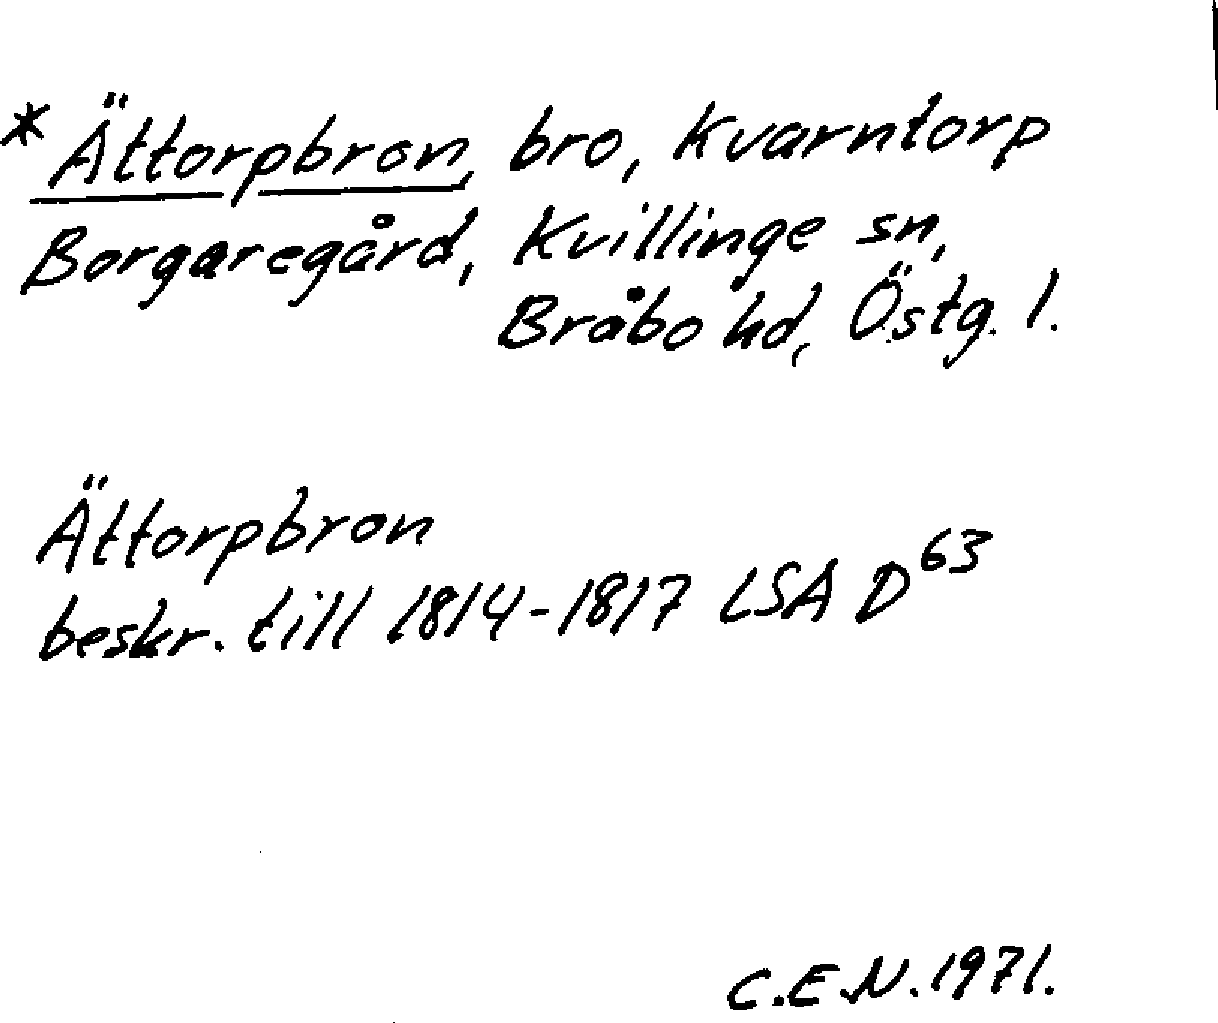 * Ättorpbron, bro, Kvarntorp
Borgaregård, Kvillinge sn,
Bråbo hd, Östg. l.
Ättorpbron
beskr. till 1814-1817 LSA D 63
C.E.N. 1971.